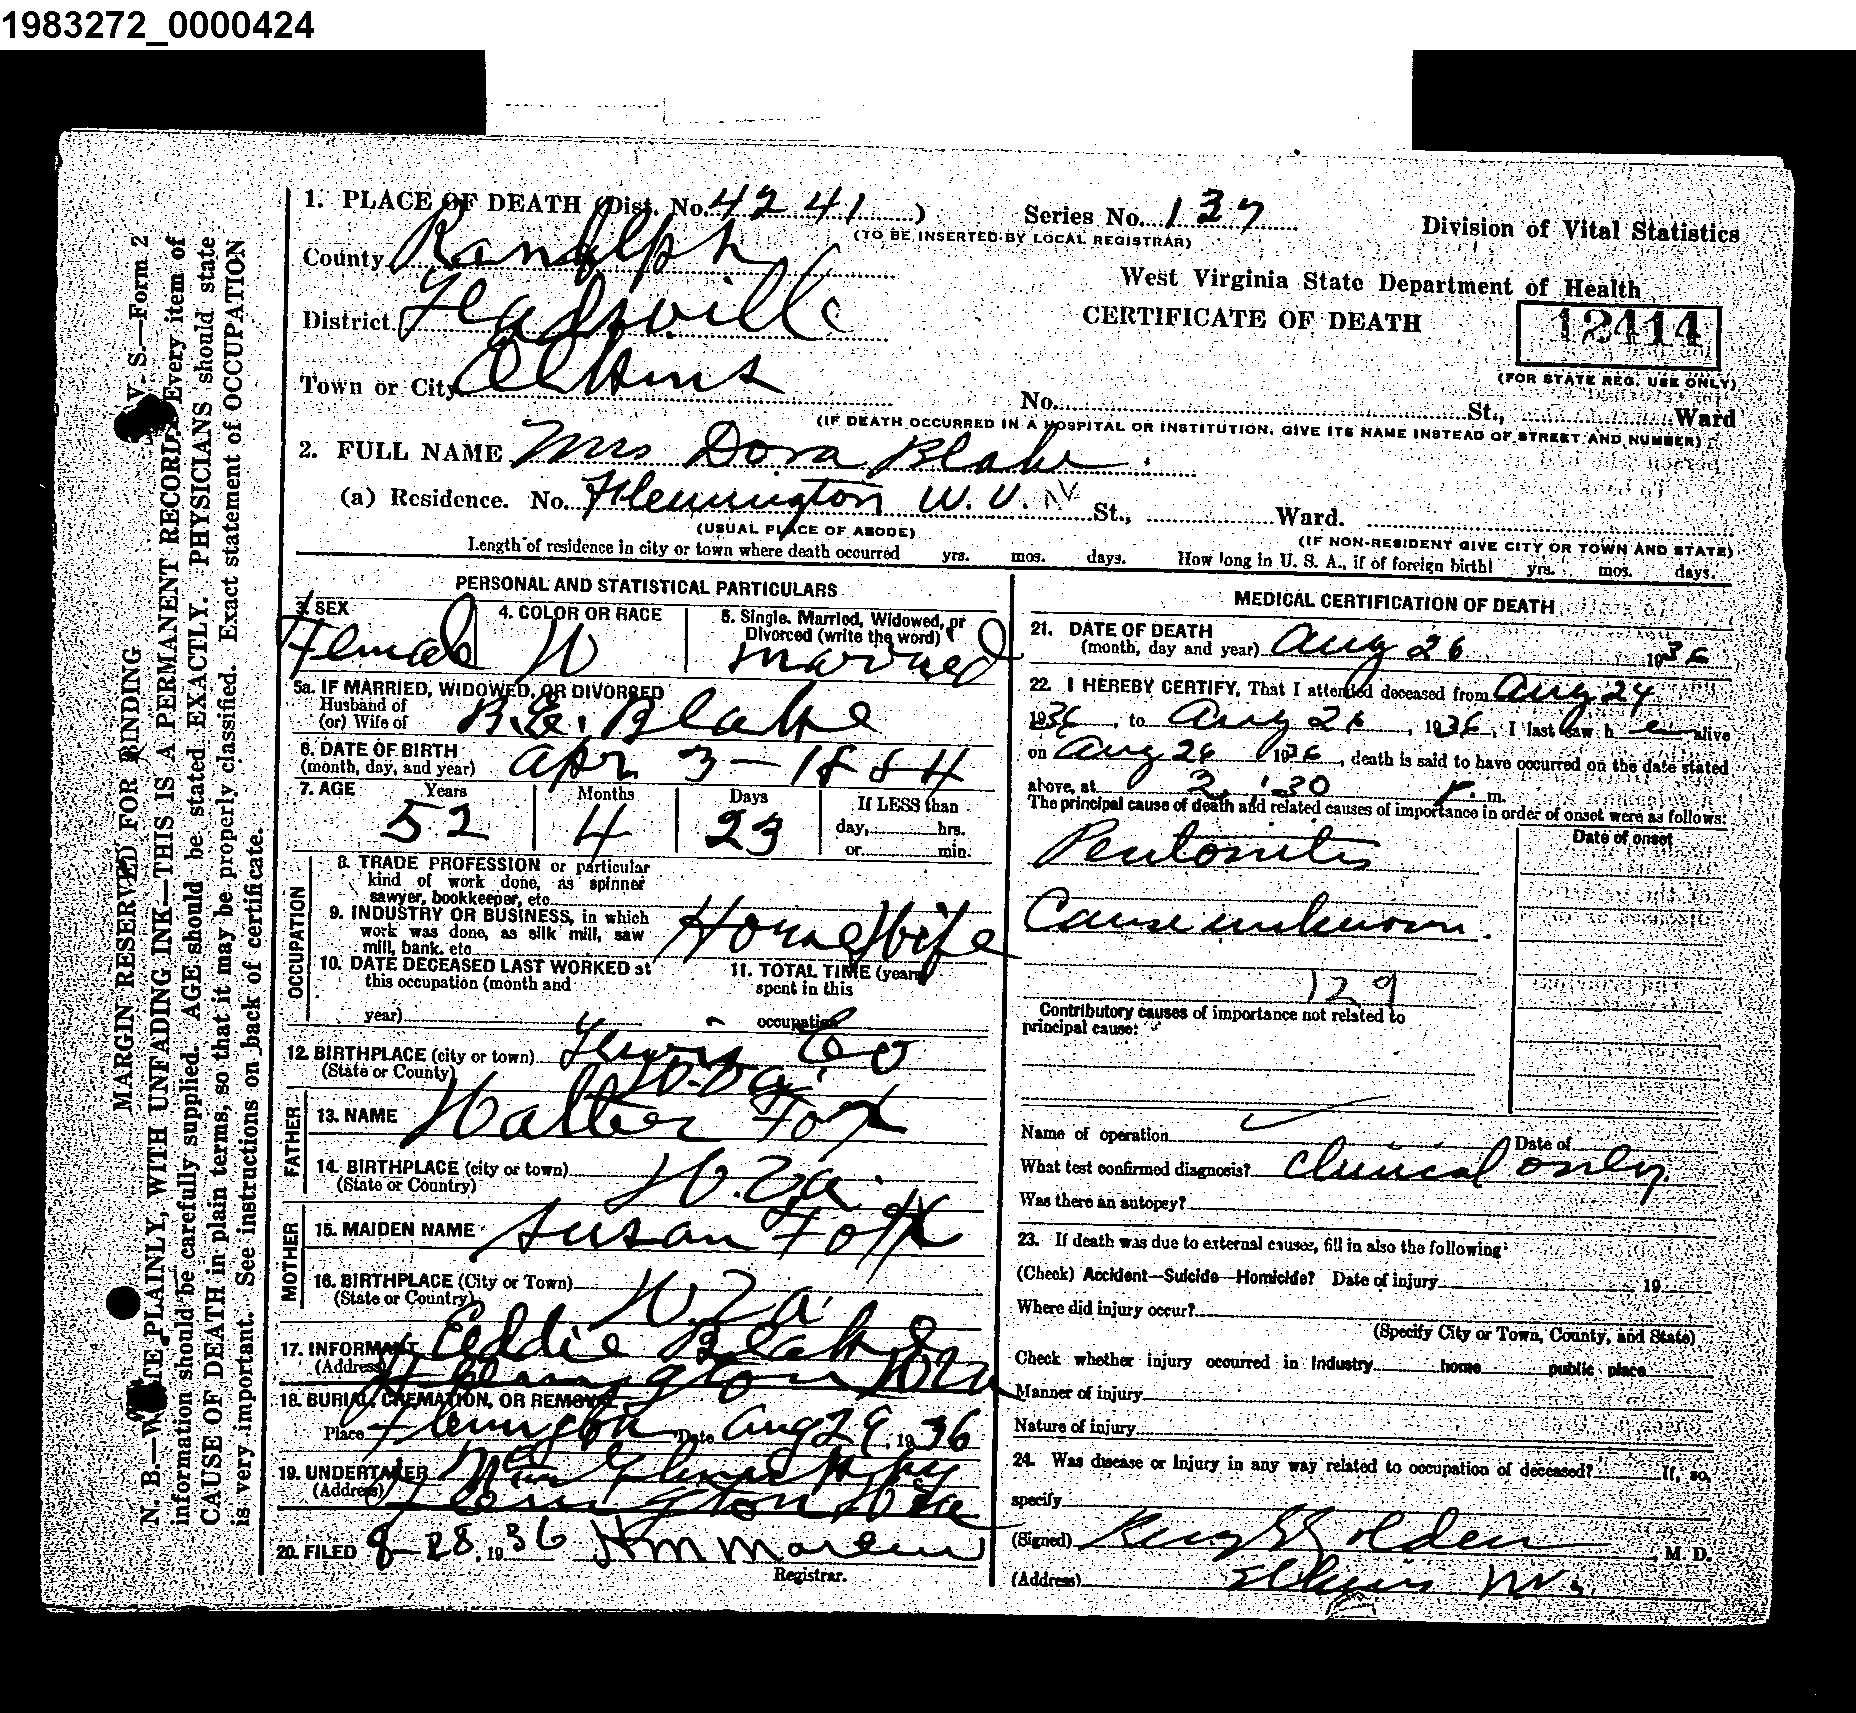 1983272_0000424
1. PLACE OF DEATH (Dist. No. 4241)
Series No. 137
(TO BE INSERTED BY LOCAL REGISTRAR)
Division of Vital Statistics
County Randolph
West Virginia State Department of Health
District
CERTIFICATE OF DEATH
12414
(FOR STATE REG. USE ONLY)
Town or City Elkins
No. St., Ward
(IF DEATH OCCURRED IN A HOSPITAL OR INSTITUTION, GIVE ITS NAME INSTEAD OF STREET AND NUMBER)
2. FULL NAME Mrs Dora Blake
(a) Residence. No. Flemington W. V. St., Ward.
(USUAL PLACE OF ABODE)
(IF NON-RESIDENT GIVE CITY OR TOWN AND STATE)
Length of residence in city or town where death occurred yrs. mos. days. How long in U. S. A., if of foreign birth! yrs. mos. days.
PERSONAL AND STATISTICAL PARTICULARS
3. SEX
Female
4. COLOR OR RACE
W
5. Single, Married, Widowed, or
Divorced (write the word)
Married
5a. IF MARRIED, WIDOWED, OR DIVORSED
Husband of
(or) Wife of B. E. Blake
6. DATE OF BIRTH
(month, day, and year) Apr 3-1884
7. AGE Years Months Days If LESS than
52 4 23 day, hrs.
or min.
OCCUPATION
8. TRADE PROFESSION or particular
kind of work done, as spinner
sawyer, bookkeeper, etc.
9. INDUSTRY OR BUSINESS, in which
work was done, as silk mill, saw
mill, bank, etc. Housewife
10. DATE DECEASED LAST WORKED at
this occupation (month and
year)
11. TOTAL TIME (years)
spent in this
occupation
12. BIRTHPLACE (city or town) Lewis Co
(State or County) W. Va.
FATHER
13. NAME Walter Fox
14. BIRTHPLACE (city or town) W. Va.
(State or Country)
MOTHER
15. MAIDEN NAME Susan Fox
16. BIRTHPLACE (City or Town) W. Va.
(State or Country)
17. INFORMANT Eddie Blake
(Address) Flemington W Va
18. BURIAL, CREMATION, OR REMOVAL
Place Flemington Date Aug 29, 1936
19. UNDERTAKER
(Address) Flemington W Va
20. FILED 8-28, 1936
Registrar.
MEDICAL CERTIFICATION OF DEATH
21. DATE OF DEATH
(month, day and year) Aug 26 1936
22. I HEREBY CERTIFY, That I attended deceased from Aug 24
1936, to Aug 26, 1936, I last saw her alive
on Aug 26 1936, death is said to have occurred on the date stated
above, at 2:30 P. m.
The principal cause of death and related causes of importance in order of onset were as follows:
Date of onset
Peritonitis
Cause unknown.
129
Contributory causes of importance not related to
principal cause:
Name of operation Date of
What test confirmed diagnosis? Clinical only
Was there an autopsy?
23. If death was due to external causes, fill in also the following:
(Check) Accident—Suicide—Homicide? Date of injury 19
Where did injury occur?
(Specify City or Town, County, and State)
Check whether injury occurred in Industry home public place
Manner of injury
Nature of injury
24. Was disease or injury in any way related to occupation of deceased? If, so,
specify
(Signed) Golden, M. D.
(Address) Elkins W V.
V. S.—Form 2
MARGIN RESERVED FOR BINDING
N. B.—WRITE PLAINLY, WITH UNFADING INK—THIS IS A PERMANENT RECORD. Every item of
information should be carefully supplied. AGE should be stated EXACTLY. PHYSICIANS should state
CAUSE OF DEATH in plain terms, so that it may be properly classified. Exact statement of OCCUPATION
is very important. See instructions on back of certificate.